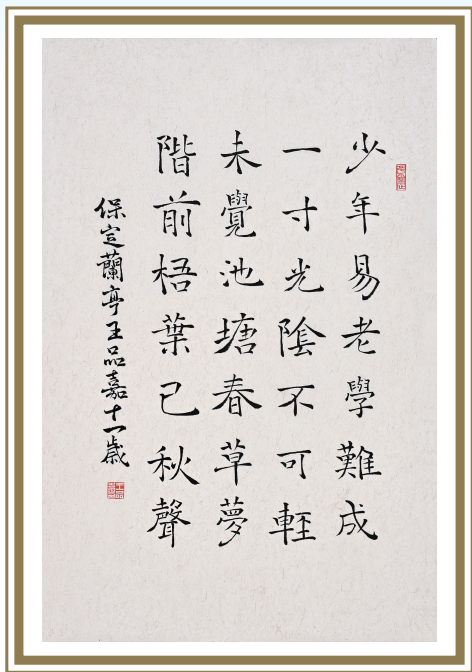 少年易老學難成
一寸光陰不可輕
未覺池塘春草夢
階前梧葉已秋聲
保定蘭亭王品嘉十一歲